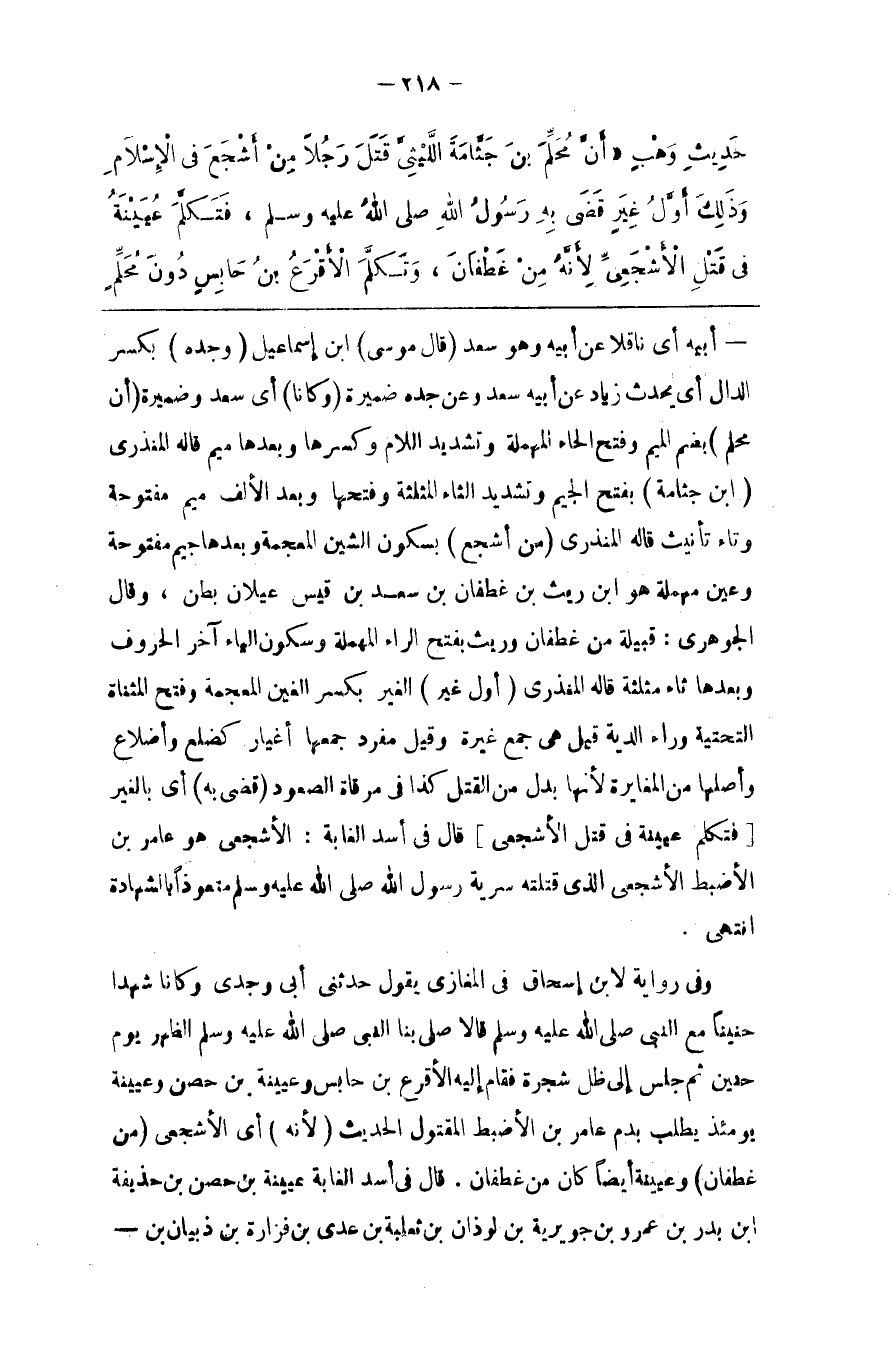 — ٢١٨ —
حَدِيثِ وَهْبٍ « أَنَّ مُحَلِّمَ بنَ جَثَّامَةَ اللَّيْثِيَّ قَتَلَ رَجُلاً مِنْ أَشْجَعَ فى الْإِسْلَامِ
وَذَلِكَ أَوَّلُ غِيَرٍ قَضَى بِهِ رَسُولُ اللهِ صلى اللهُ عليه وسلم ، فَتَكَلَّمَ عُيَيْنَةُ
فى قَتْلِ الْأَشْجَعِىِّ لِأَنَّهُ مِنْ غَطَفَانَ ، وَتَكَلَّمَ الْأَقْرَعُ بنُ حَابِسٍ دُونَ مُحَلِّمٍ
— أبيه أى ناقلا عن أبيه وهو سعد ( قال موسى ) ابن إسماعيل ( وجده ) بكسر
الدال أى يحدث زياد عن أبيه سعد وعن جده ضميرة (وكانا) أى سعد وضميرة (أن
محلم ) بضم الميم وفتح الحاء المهملة وتشديد اللام وكسرها وبعدها ميم قاله المنذرى
( ابن جثامة ) بفتح الجيم وتشديد الثاء المثلثة وفتحها وبعد الألف ميم مفتوحة
وتاء تأنيث قاله المنذرى (من أشجع ) بسكون الشين المعجمة وبعدها جيم مفتوحة
وعين مهملة هو ابن ريث بن غطفان بن سعد بن قيس عيلان بطن ، وقال
الجوهرى : قبيلة من غطفان وريث بفتح الراء المهملة وسكون الياء آخر الحروف
وبعدها ثاء مثلثة قاله المنذرى ( أول غير ) الغير بكسر الغين المعجمة وفتح المثناة
التحتية وراء الدية قيل هى جمع غيرة وقيل مفرد جمعها أغيار كضلع وأضلاع
وأصلها من المغايرة لأنها بدل من القتل كذا فى مرقاة الصعود (قضى به) أى بالغير
[ فتكلم عيينة فى قتل الأشجعى ] قال فى أسد الغابة : الأشجعى هو عامر بن
الأضبط الأشجعى الذى قتلته سرية رسول الله صلى الله عليه وسلم متعوذاً بالشهادة
انتهى .
وفى رواية لابن إسحاق فى المغازى يقول حدثنى أبى وجدى وكانا شهدا
حنيناً مع النبى صلى الله عليه وسلم قالا صلى بنا النبى صلى الله عليه وسلم الظهر يوم
حنين ثم جلس إلى ظل شجرة فقام إليه الأقرع بن حابس وعيينة بن حصن وعيينة
يومئذ يطلب بدم عامر بن الأضبط المقتول الحديث ( لأنه ) أى الأشجعى (من
غطفان) وعيينة أيضاً كان من غطفان . قال فى أسد الغابة عيينة بن حصن بن حذيفة
ابن بدر بن عمرو بن جويرية بن لوذان بن ثعلبة بن عدى بن فزارة بن ذبيان بن —